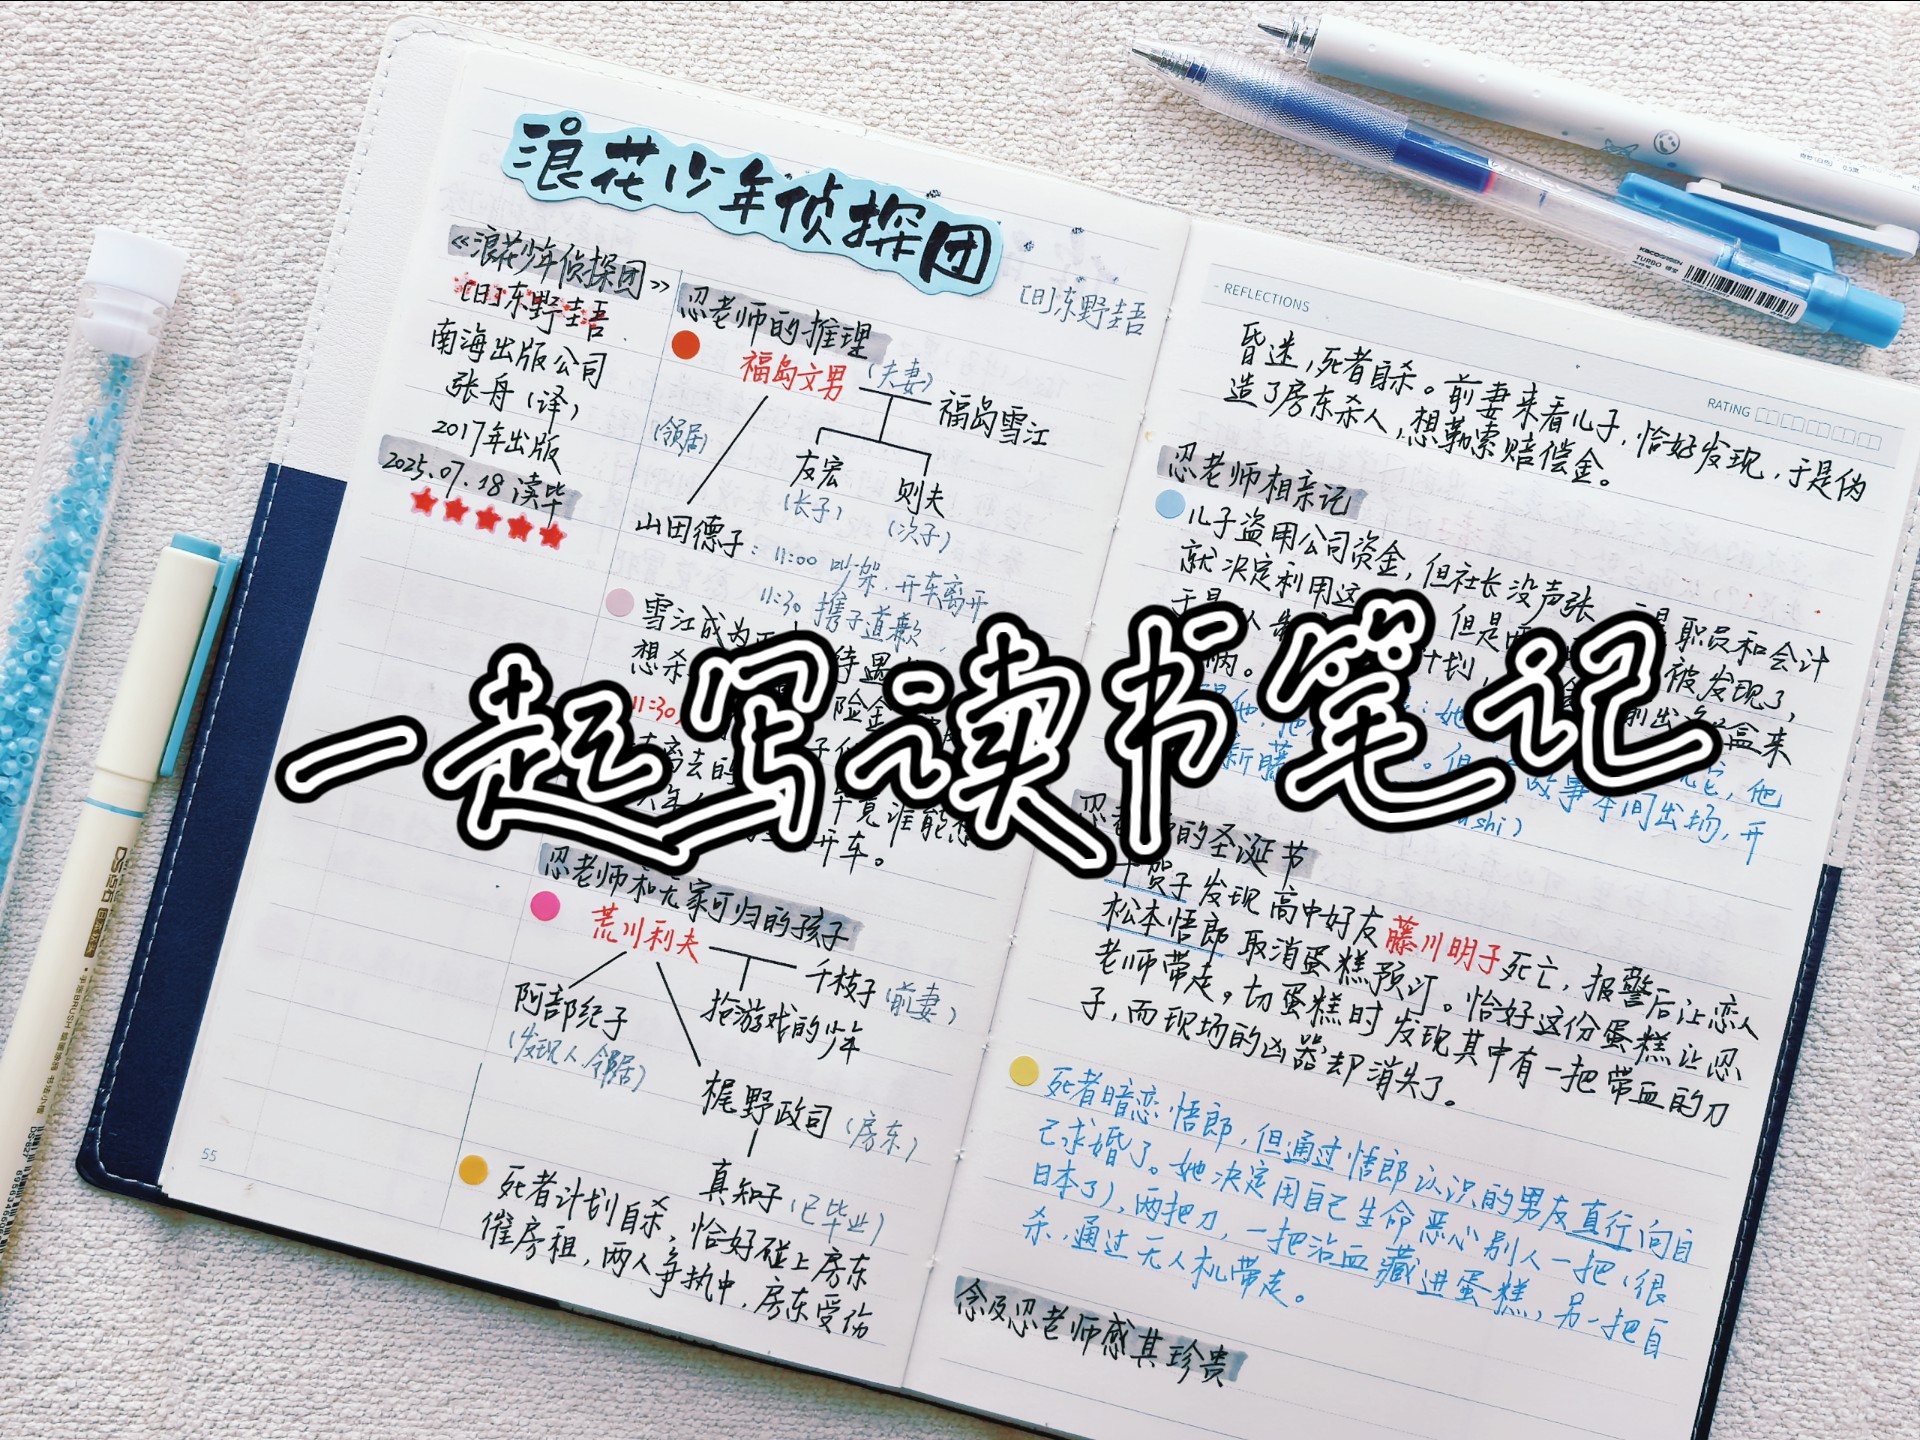 浪花少年侦探团
[日]东野圭吾
《浪花少年侦探团》
[日]东野圭吾
南海出版公司
张舟(译)
2017年出版
2025.07.18读毕
忍老师的推理
福岛文男
(夫妻)
福岛雪江
(邻居)
友宏
(长子)
则夫
(次子)
山田德子:11:00 吵架,开车离开
11:30 携子道歉,
雪江成为
想杀
11:30
险金
离去的
毕竟谁能想
开车。
忍老师和无家可归的孩子
荒川利夫
千枝子(前妻)
抢游戏的少年
阿部纪子
(发现人.邻居)
梶野政司(房东)
真知子(已毕业)
死者计划自杀,恰好碰上房东
催房租,两人争执中,房东受伤
55
REFLECTIONS
RATING
昏迷,死者自杀。前妻来看儿子,恰好发现,于是伪
造了房东杀人,想勒索赔偿金。
忍老师相亲记
儿子盗用公司资金,但社长没声张
职员和会计
就决定利用这
但是
被发现了,
计划,
盒来
新藤
故事本间出场,开
的圣诞节
千贺子发现高中好友藤川明子死亡,报警后让恋人
松本悟郎取消蛋糕预订。恰好这份蛋糕让忍
老师带走。切蛋糕时发现其中有一把带血的刀
子,而现场的凶器却消失了。
死者暗恋悟郎,但通过悟郎认识的男友直行向自
己求婚了。她决定用自己生命恶心别人一把(很
日本了),两把刀,一把沾血藏进蛋糕,另一把自
杀,通过无人机带走。
念及忍老师感其珍贵
一起写读书笔记
KACOGREEN
TURBO